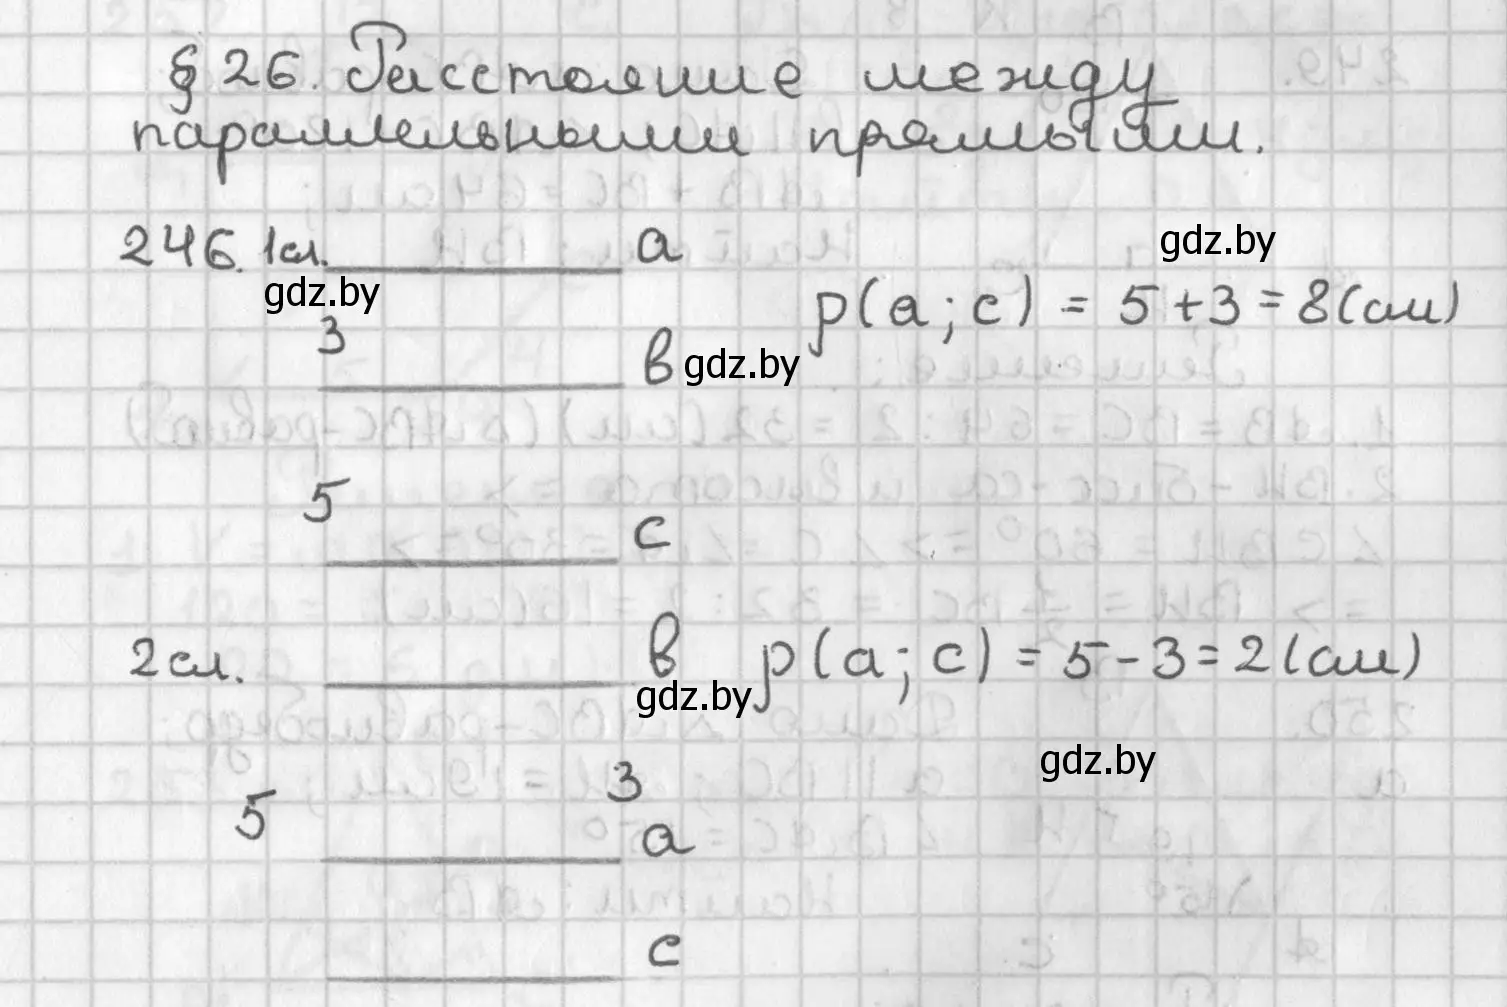 § 26. Расстояние между
параллельными прямыми.
246. 1сл. a
gdz.by
gdz.by
p(a; c) = 5 + 3 = 8(см)
3
в gdz.by
5
c
2 сл. в p(a; c) = 5 - 3 = 2(см)
gdz.by
gdz.by
3
5
a
c